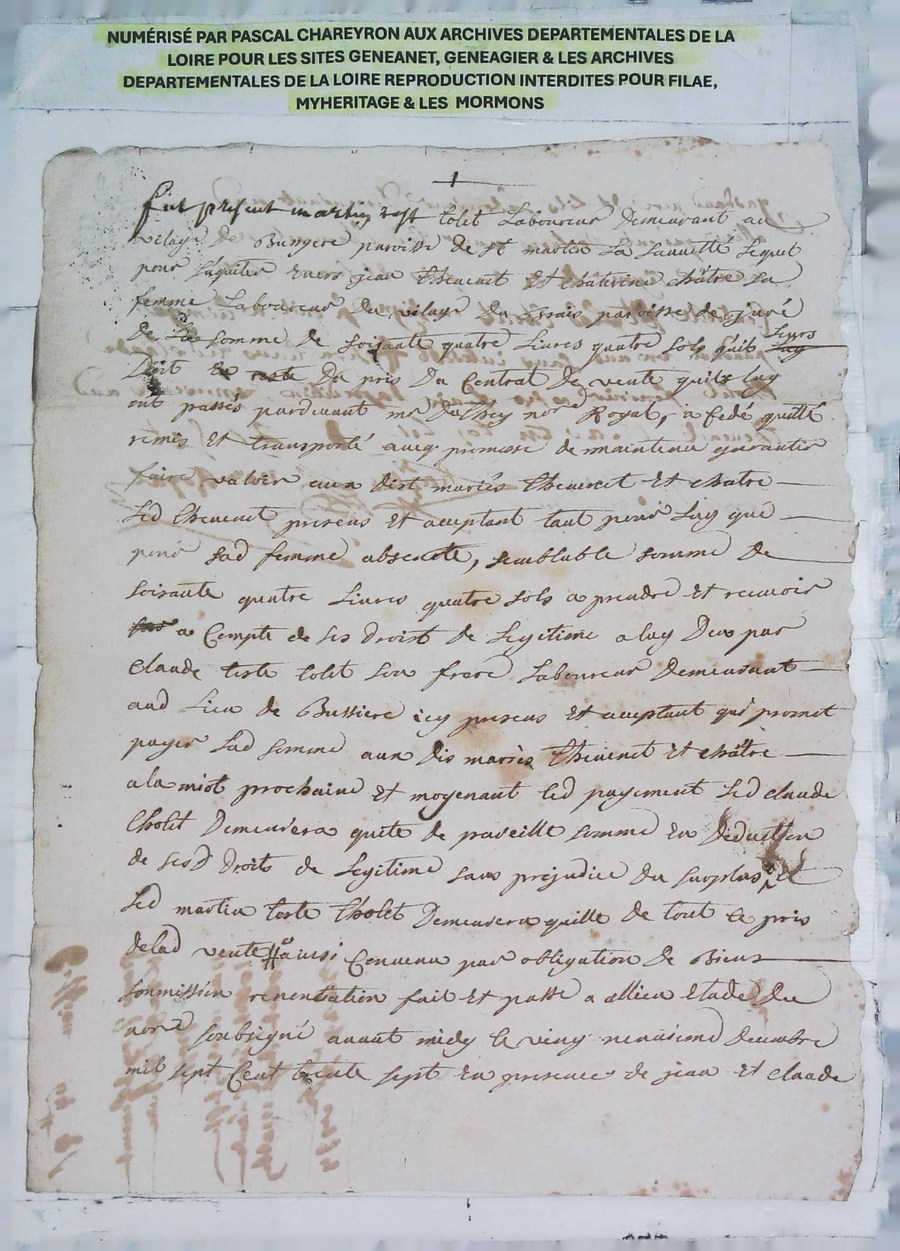 NUMÉRISÉ PAR PASCAL CHAREYRON AUX ARCHIVES DEPARTEMENTALES DE LA
LOIRE POUR LES SITES GENEANET, GENEAGIER & LES ARCHIVES
DEPARTEMENTALES DE LA LOIRE REPRODUCTION INTERDITES POUR FILAE,
MYHERITAGE & LES MORMONS
fut present martin tolet Laboureur Demeurant au
vilage De paroisse de st martin La sauveté Lequel
pour s'aquiter envers jean thevenet Et Catherine châtre sa
femme Laboureurs Du vilage Du paroisse de juré
de La somme de soisante quatre Livres quatre sols quil Leurs
Doit Du pris Du Contrat De vente quils luy
ont passés pardevant me nore Royal, a Cedé quitté
remis Et transporté avecq promesse de maintenir garantir
faire valoir aux dist mariés thevenet Et chatre
Led thevenet presens Et aceptant tant pour Luy que
pour sad femme absente, semblable somme De
soisante quatre Livres quatre sols a prendre Et recevoir
a Compte de ses Droits de Legitime a luy Deus par
Claude teste tolet son frere Laboureur Demeurant
aud Lieu de Bussiere icy presens Et aceptant qui promet
payer Lad somme aux dis mariés thevenet Et châtre
a la miot prochaine Et moyenant Led payement Led claude
tholet Demeurera quite de pareille somme En Deduction
de sesd Droits de Legitime sans prejudice Du surplus et
Led martin teste tholet Demeurera quitte de tout Le pris
delad vente ainsi Convenu par obligation de Biens
soumission renontiation fait Et passé a allieu Etude Du
nore soubsigné avant midy le vingt neuvieme Decembre
mil sept Cent trente sept En presence de jean Et claude